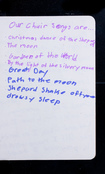 Our Choir Songs are...
Christmas dance of the Shepherds
The Moon
Garden of the World
By the light of the Silvery Moon
Great Day
Path to the moon
Shepard Shake off your
drowsy sleep